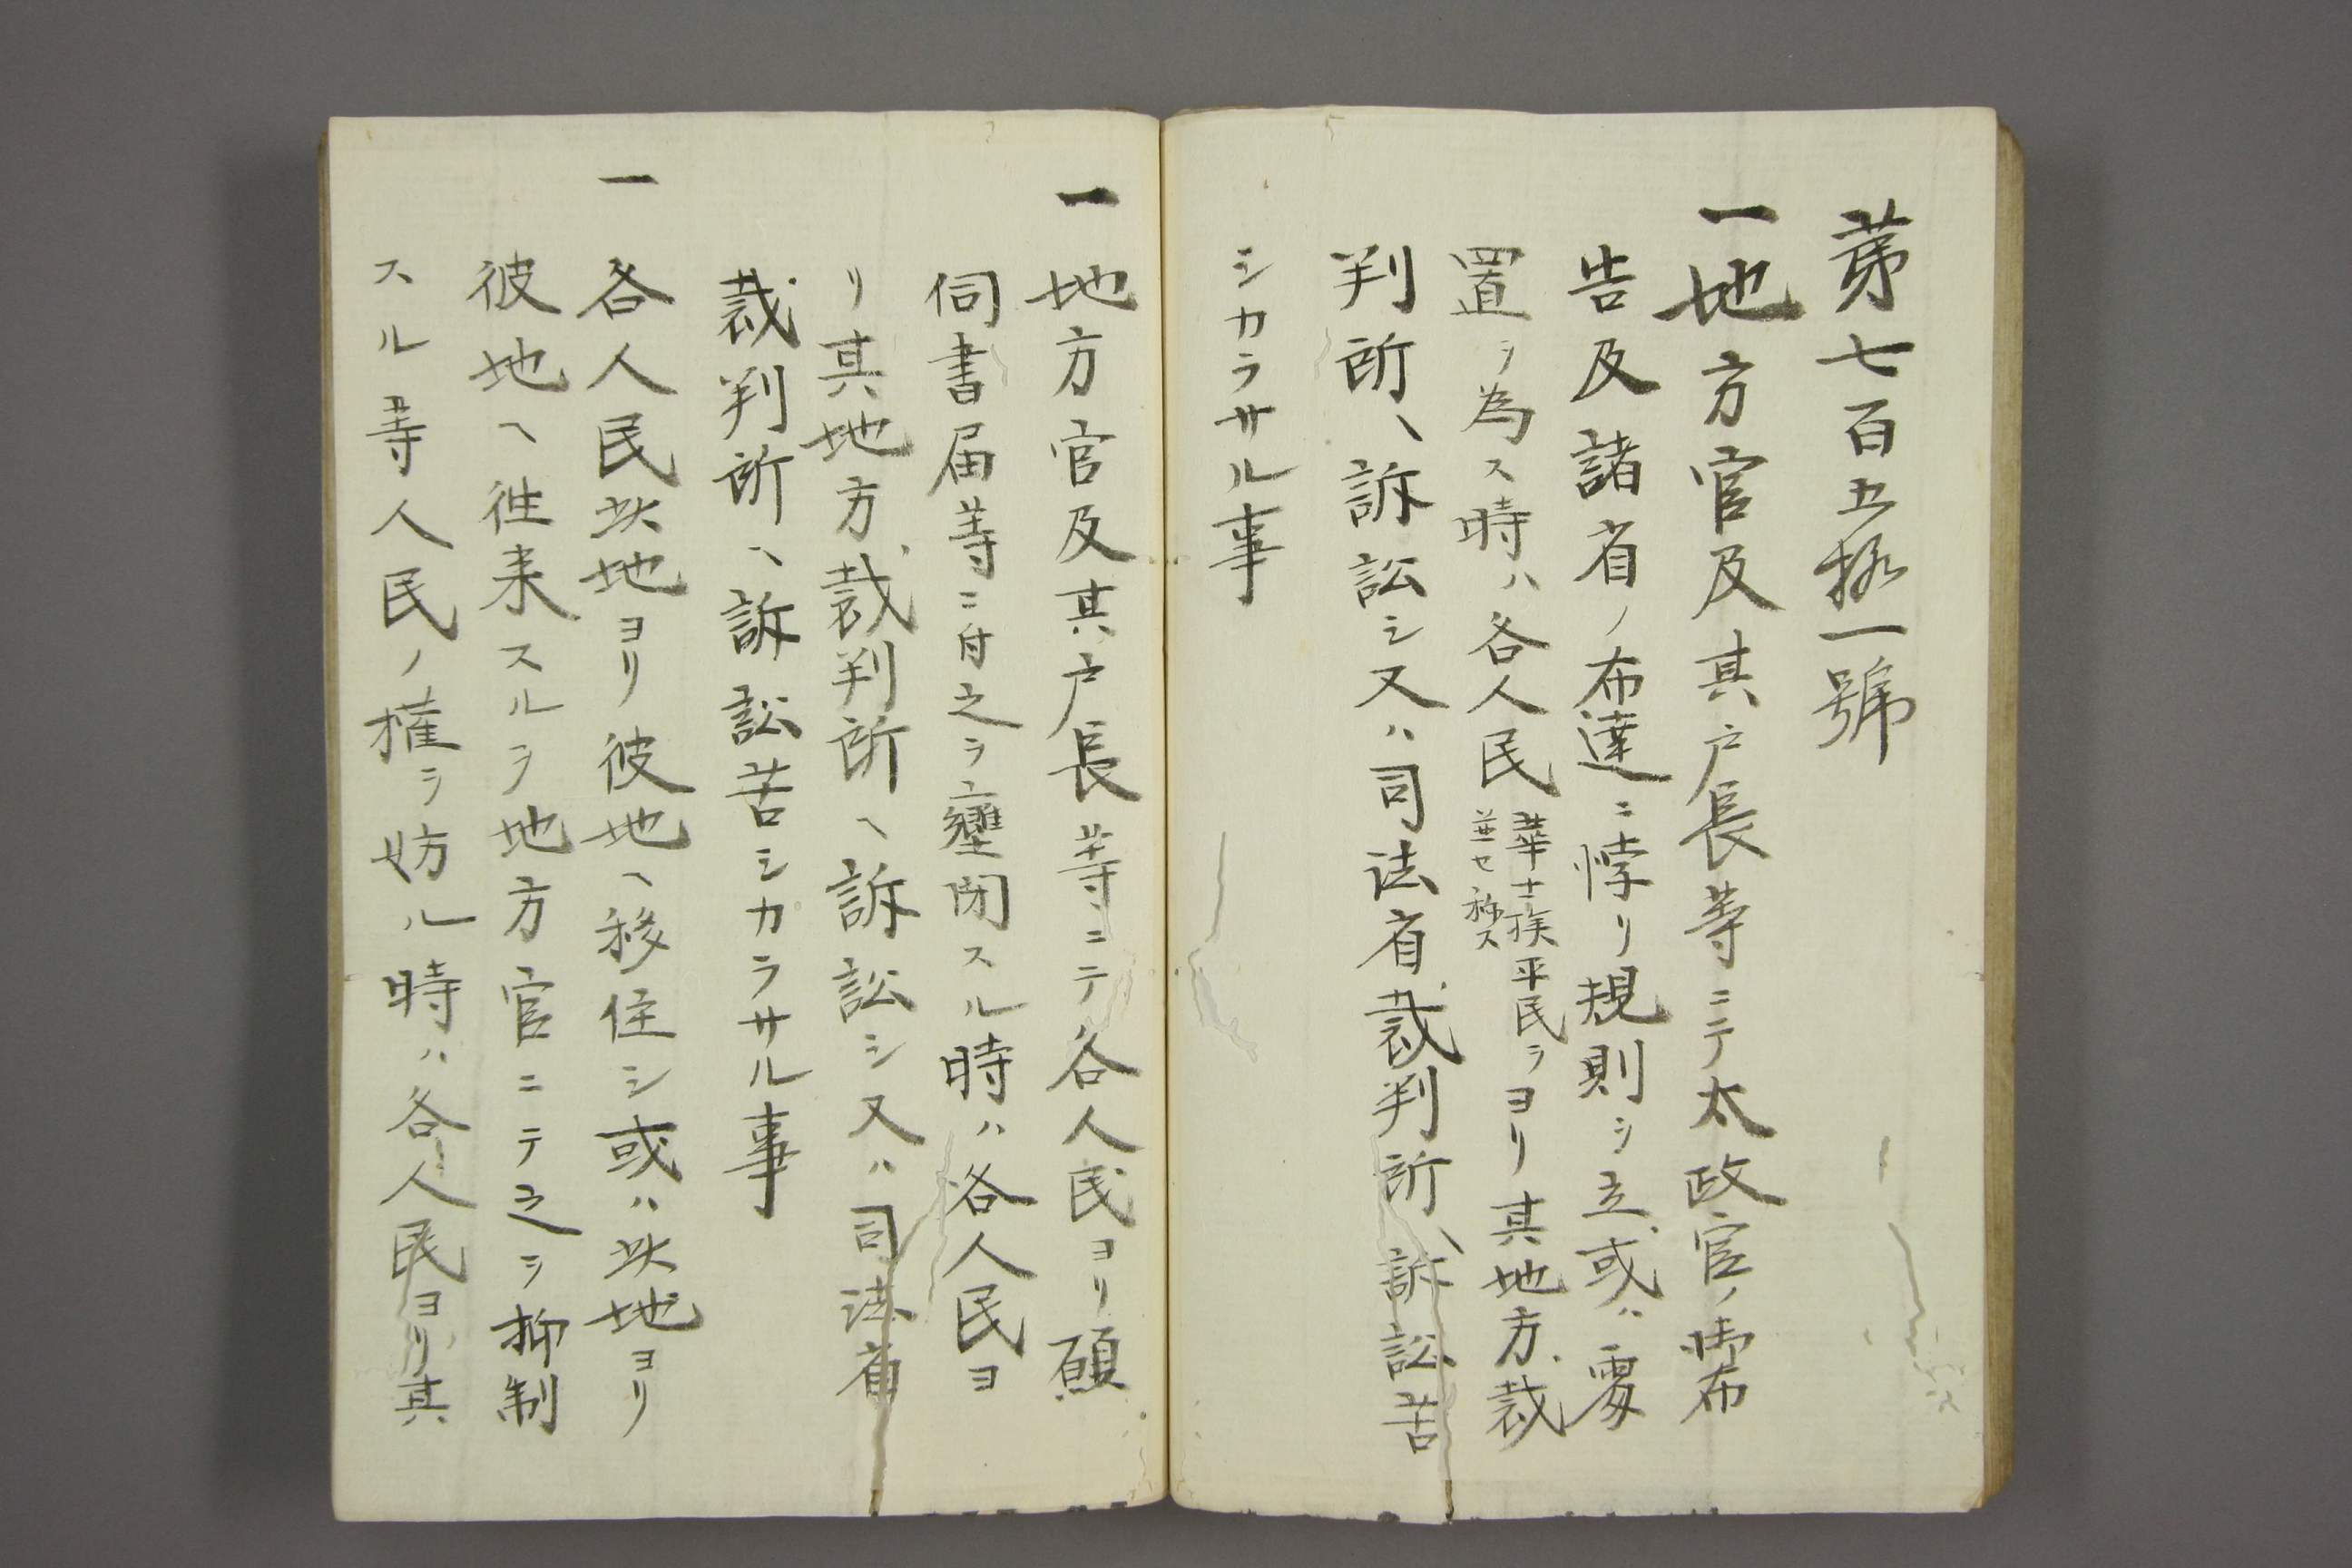 第七百五拾一號
一地方官及其戸長等ニテ太政官ノ御布
告及諸省ノ布達ニ悖リ規則ヲ立或ハ處
置ヲ為ス時ハ各人民華士族平民ヲ並セ称スヨリ其地方裁
判所ヘ訴訟シ又ハ司法省裁判所ヘ訴訟苦
シカラサル事
一地方官及其戸長等ニテ各人民ヨリ願
伺書届等ニ付之ヲ壅閉スル時ハ各人民ヨ
リ其地方裁判所ヘ訴訟シ又ハ司法省
裁判所ヘ訴訟苦シカラサル事
一各人民此地ヨリ彼地ヘ移住シ或ハ此地ヨリ
彼地ヘ往来スルヲ地方官ニテ之ヲ抑制
スル等人民ノ権ヲ妨ル時ハ各人民ヨリ其